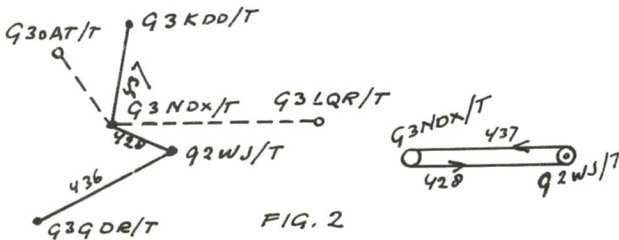 G3KDD/T
G3OAT/T
G3NDX/T
G3LQR/T
428
G2WJ/T
436
G3GDR/T
FIG. 2
G3NDX/T
437
428
G2WJ/T